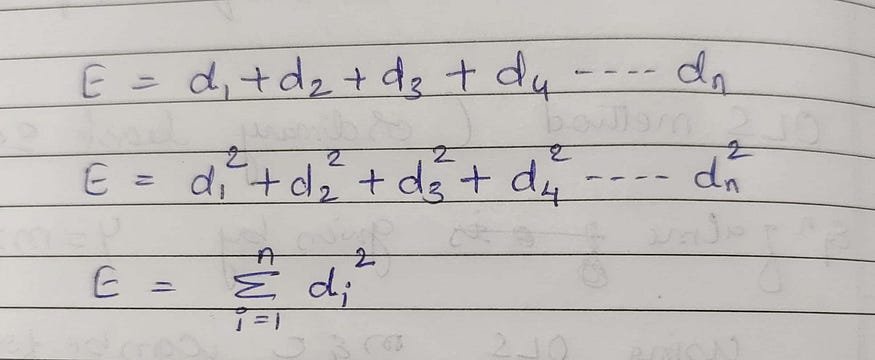 E = d₁ + d₂ + d₃ + d₄ ---- dₙ
E = d₁² + d₂² + d₃² + d₄² ---- dₙ²
E = Σᵢ₌₁ⁿ dᵢ²